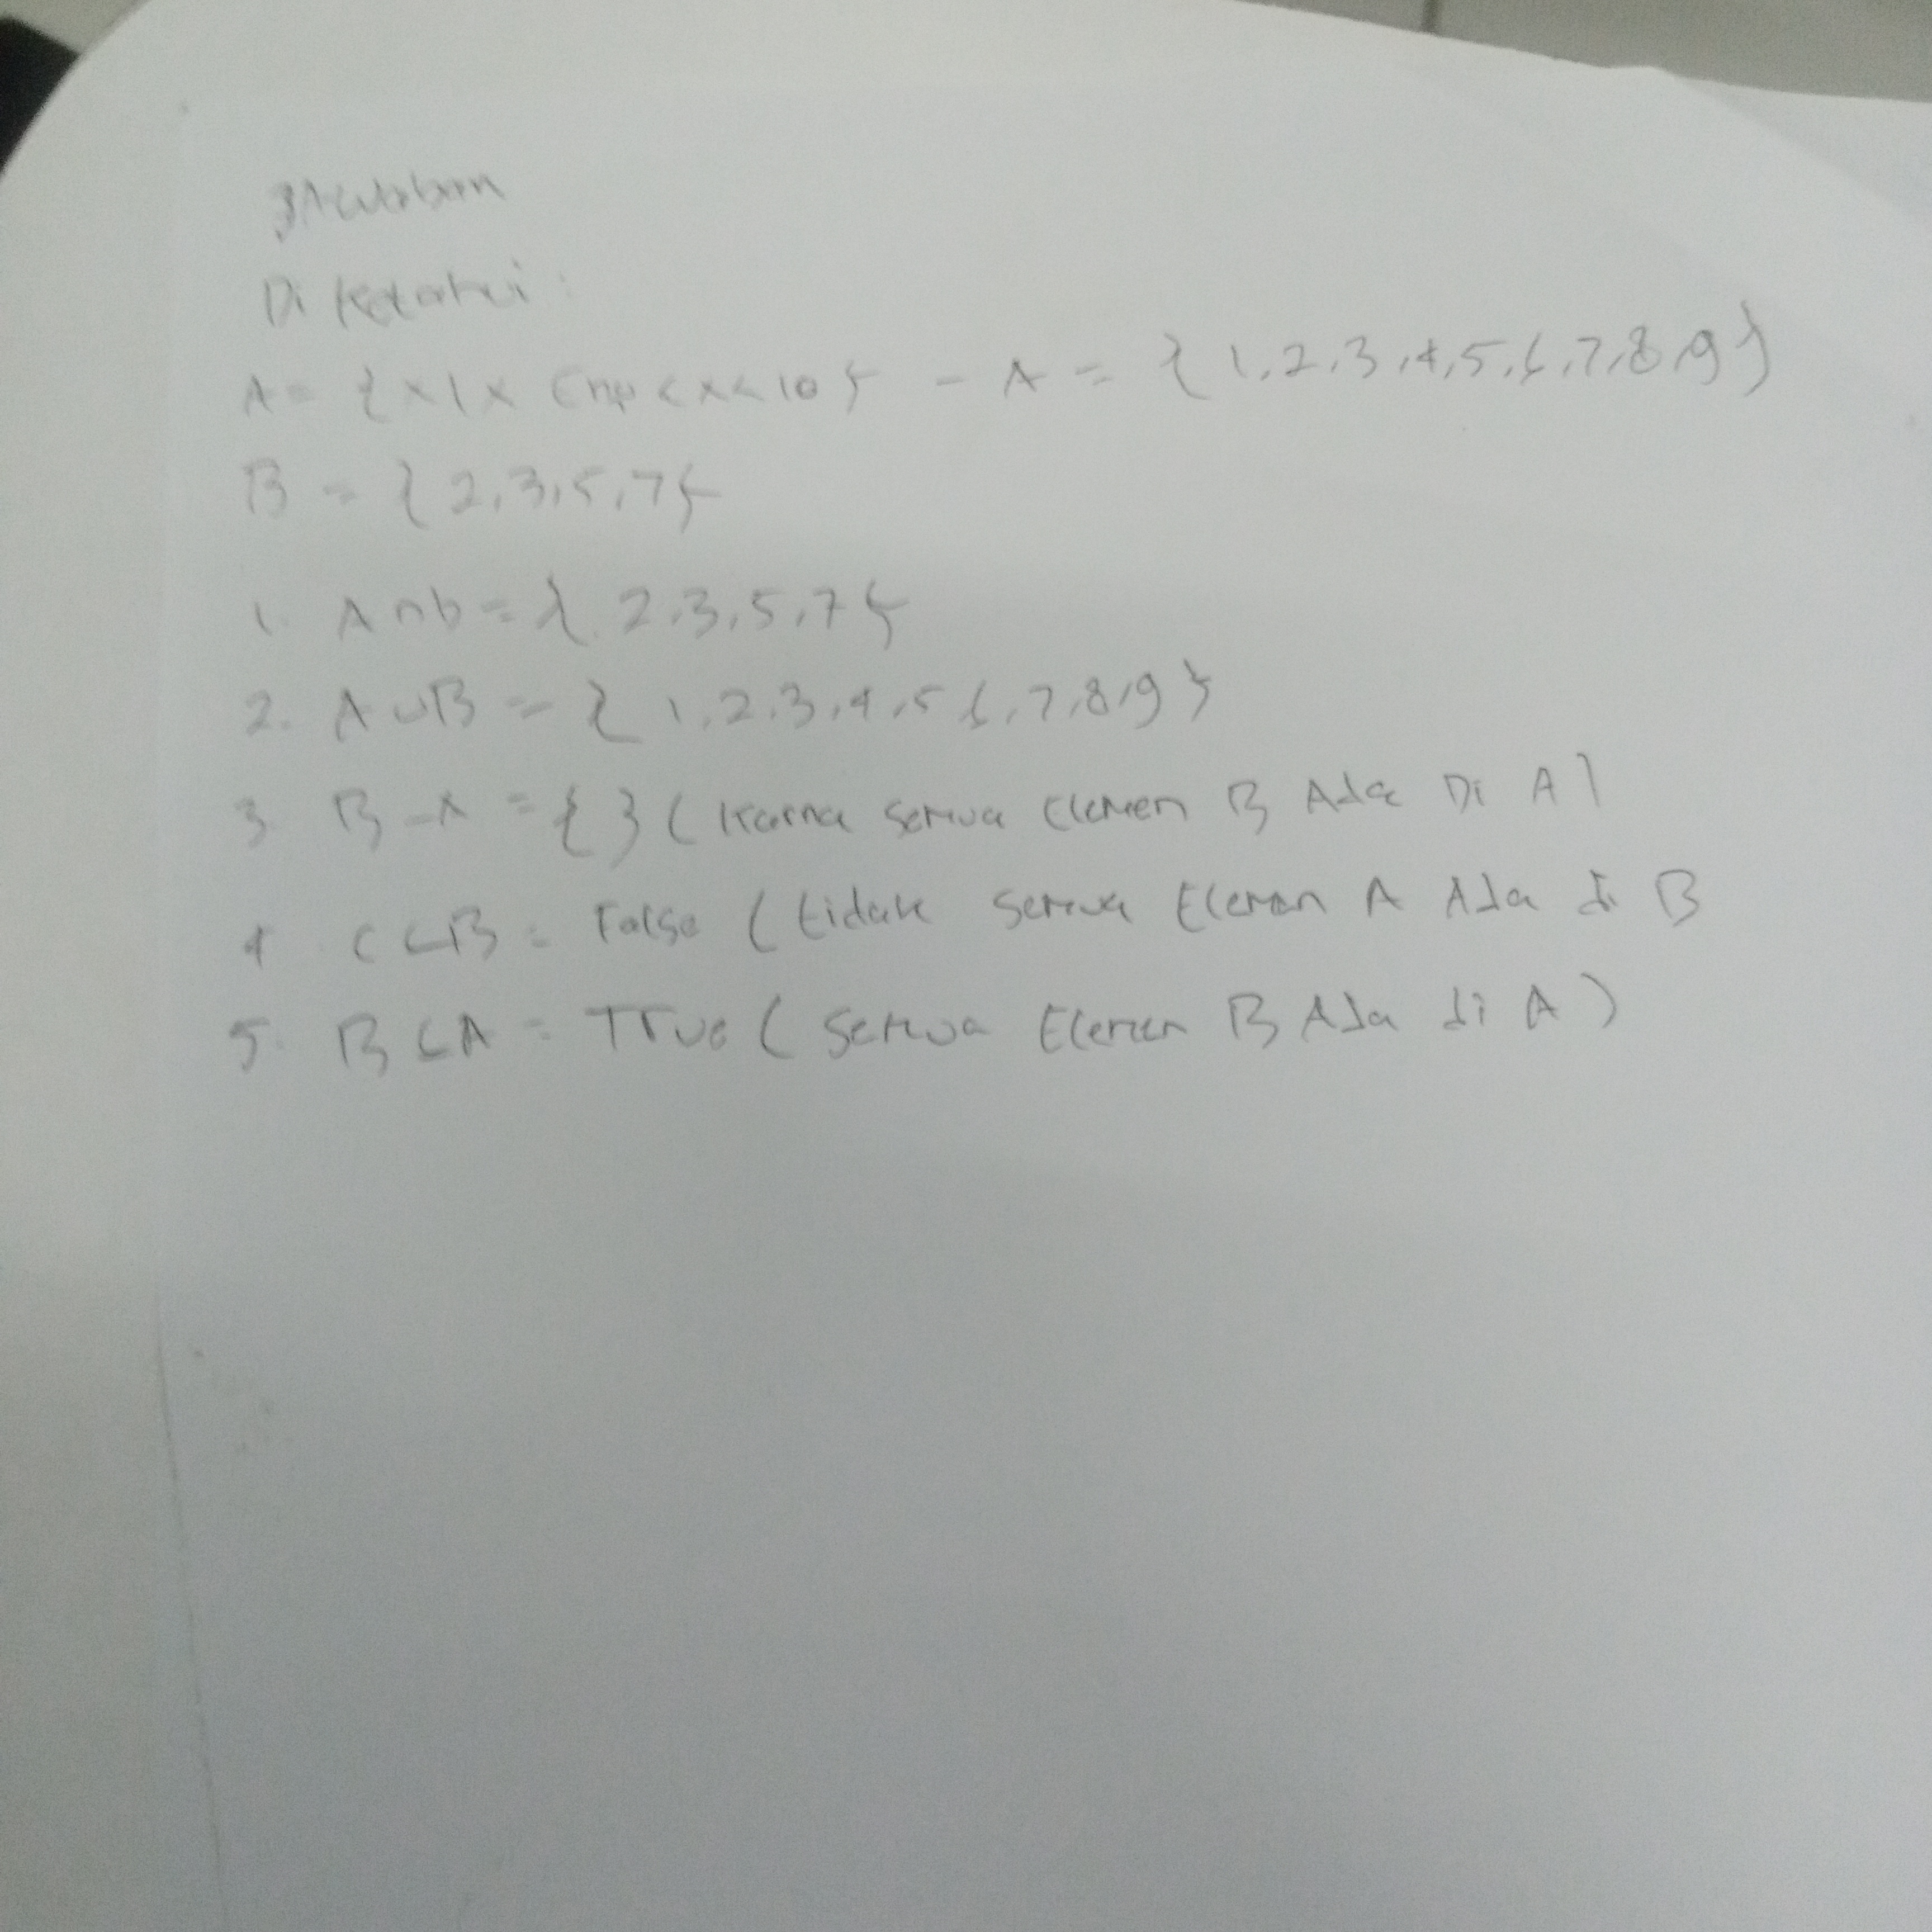 JAwaban
Di Ketahui :
A = { x | x < x < 10 } - A = { 1, 2, 3, 4, 5, 6, 7, 8, 9 }
B = { 2, 3, 5, 7 }
1. A ∩ b = { 2, 3, 5, 7 }
2. A ∪ B = { 1, 2, 3, 4, 5 6, 7, 8, 9 }
3 B - A = { } ( Karna semua Elemen B Ada Di A )
4 C ⊂ B = False ( tidak semua Elemen A Ada di B
5. B ⊂ A = True ( Semua Elemen B Ada di A )